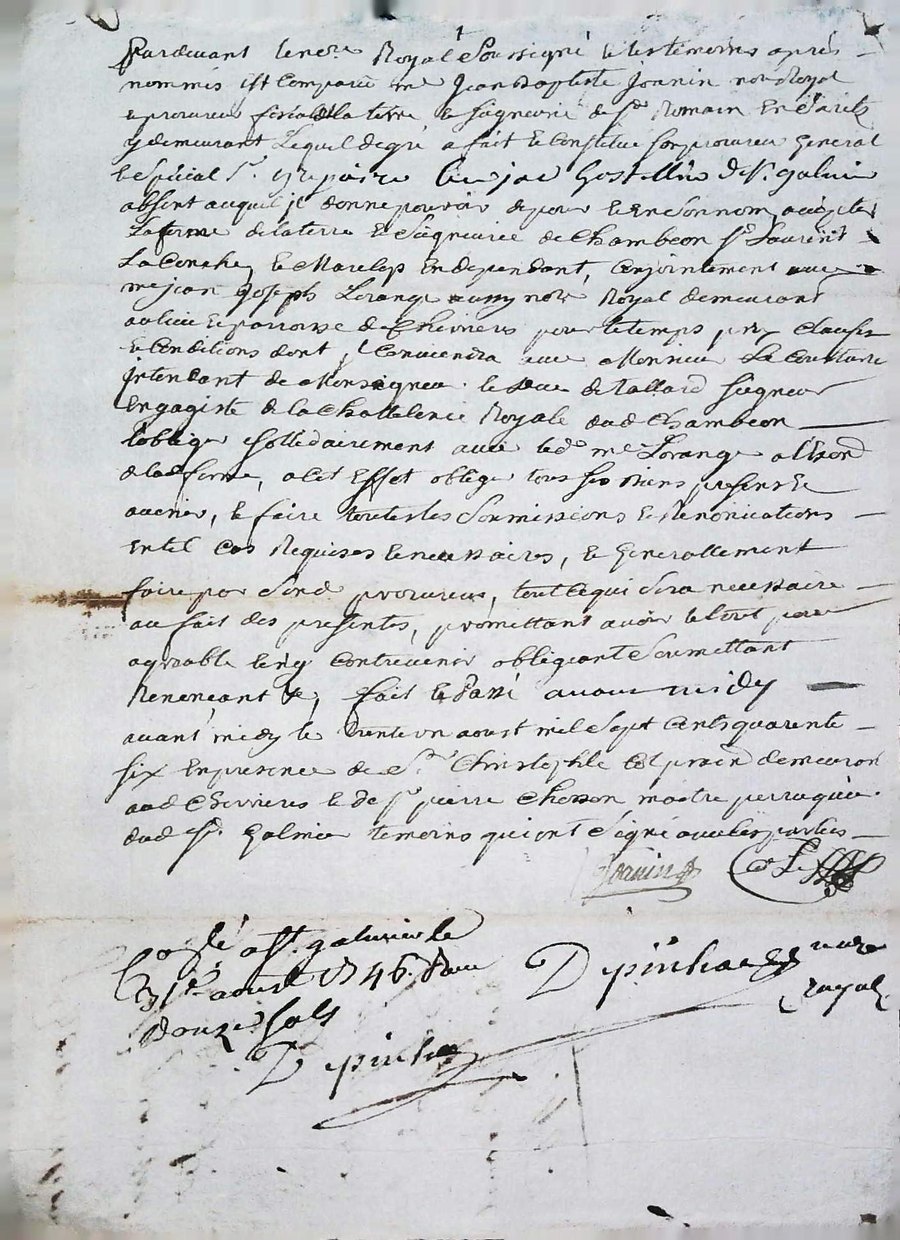 Pardevant le no.re Royal Soussigné & les temoins aprés
nommés Est Comparu me Jean Baptiste Joanin no.re Royal
& procureur fiscal de la terre & Seigneurie de St Romain En Jarets
y demeurant Lequel de gré a fait & Constitué son procureur General
& spécial Sr
absent auquel il donne pouvoir de pour & En son nom, accepter
La ferme de la terre & Seigneurie de Chambeon St Laurent
La Conche, & Marclop En dependant, Conjointement avec
me jean Joseph Lorange aussy no.re Royal demeurant
au lieu & parroisse de Chevrieres pour le temps, prix Clauses
& Conditions dont il Conviendra avec Monsieur Le Cousturie
Intendant de Monseigneur le Duc de Tallard Seigneur
Engagiste de la Chattelenie Royale dud Chambeon
l'obliger sollidairement avec led. me Lorange a l'Egard
de lad ferme, a cet Effet obliger tous ses Biens presens &
avenir, & faire toutes les Soumissions & Renonciations
En tel Cas Requises & necessaires, & Generallement
faire par Sond procureur, tout ce qui Sera necessaire
au fait des presentes, promettant avoir le tout pour
agreable & n'y Contrevenir obligeant Soumettant
Renonçant &, fait & Passé avant midy
avant midy le trente un aoust mil Sept Cents quarente
six En presence de Sr Christophle demeurant
aud Chevrieres & de Sr pierre Chosson maitre perruquier
dud St Galmier temoins qui ont Signé avec les parties
Joanin
Conlé a St galmier le
31e aoust 1746. Reçu
douze sols
Depinhac no.re
royal
Depinhac